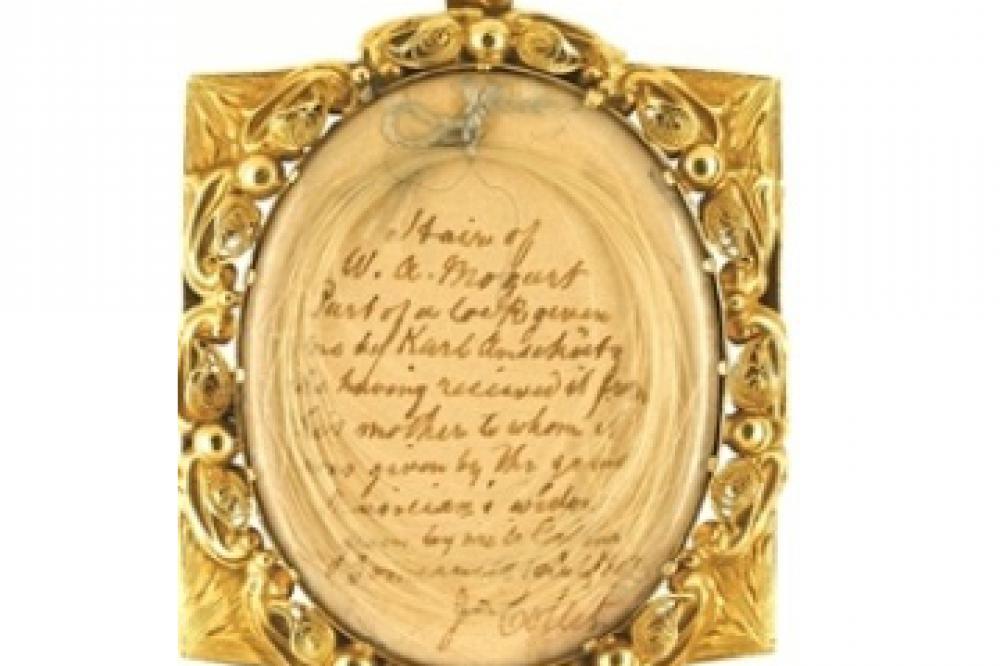 Hair of
W. A. Mozart
Part of a lock given
me by Karl Anschütz
having received it from
his mother to whom it
was given by the great
musician's widow
given by me to
Jn